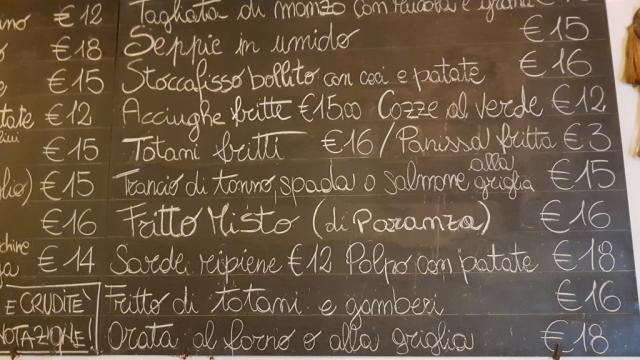 €12 Tagliata di manzo con rucola e grana €15
€18 Seppie in umido
€15 Stoccafisso bollito con ceci e patate €16
€12 Acciughe fritte €15oo Cozze al verde €12
€15 Totani fritti €16/Panissa fritta €3
€15 Trancio di tonno, spada o salmone alla griglia €15
€16 Fritto Misto (di Paranza) €16
€14 Sarde ripiene €12 Polpo con patate €18
E CRUDITE' Fritto di totani e gamberi €16
NOTAZIONE! Orata al forno o alla griglia €18